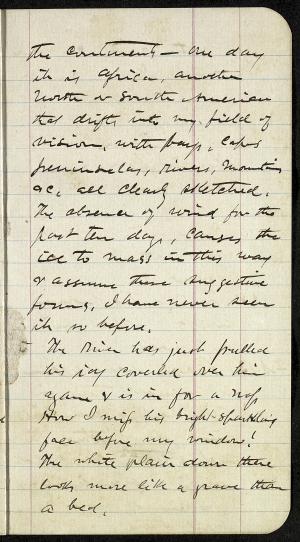 the continents — one day
it is Africa, another
North or South American
that drifts into my field of
vision, with bays, capes
peninsulas, rivers, mountains
&c, all clearly sketched.
The absence of wind for the
past ten days, causes the
ice to mass in this way
& assume these suggestive
forms, I have never seen
it so before.
The River has just pulled
his icy coverlid over him
again & is in for a nap
How I miss his bright-sparkling
face before my window!
The white plain down there
looks more like a grave than
a bed.